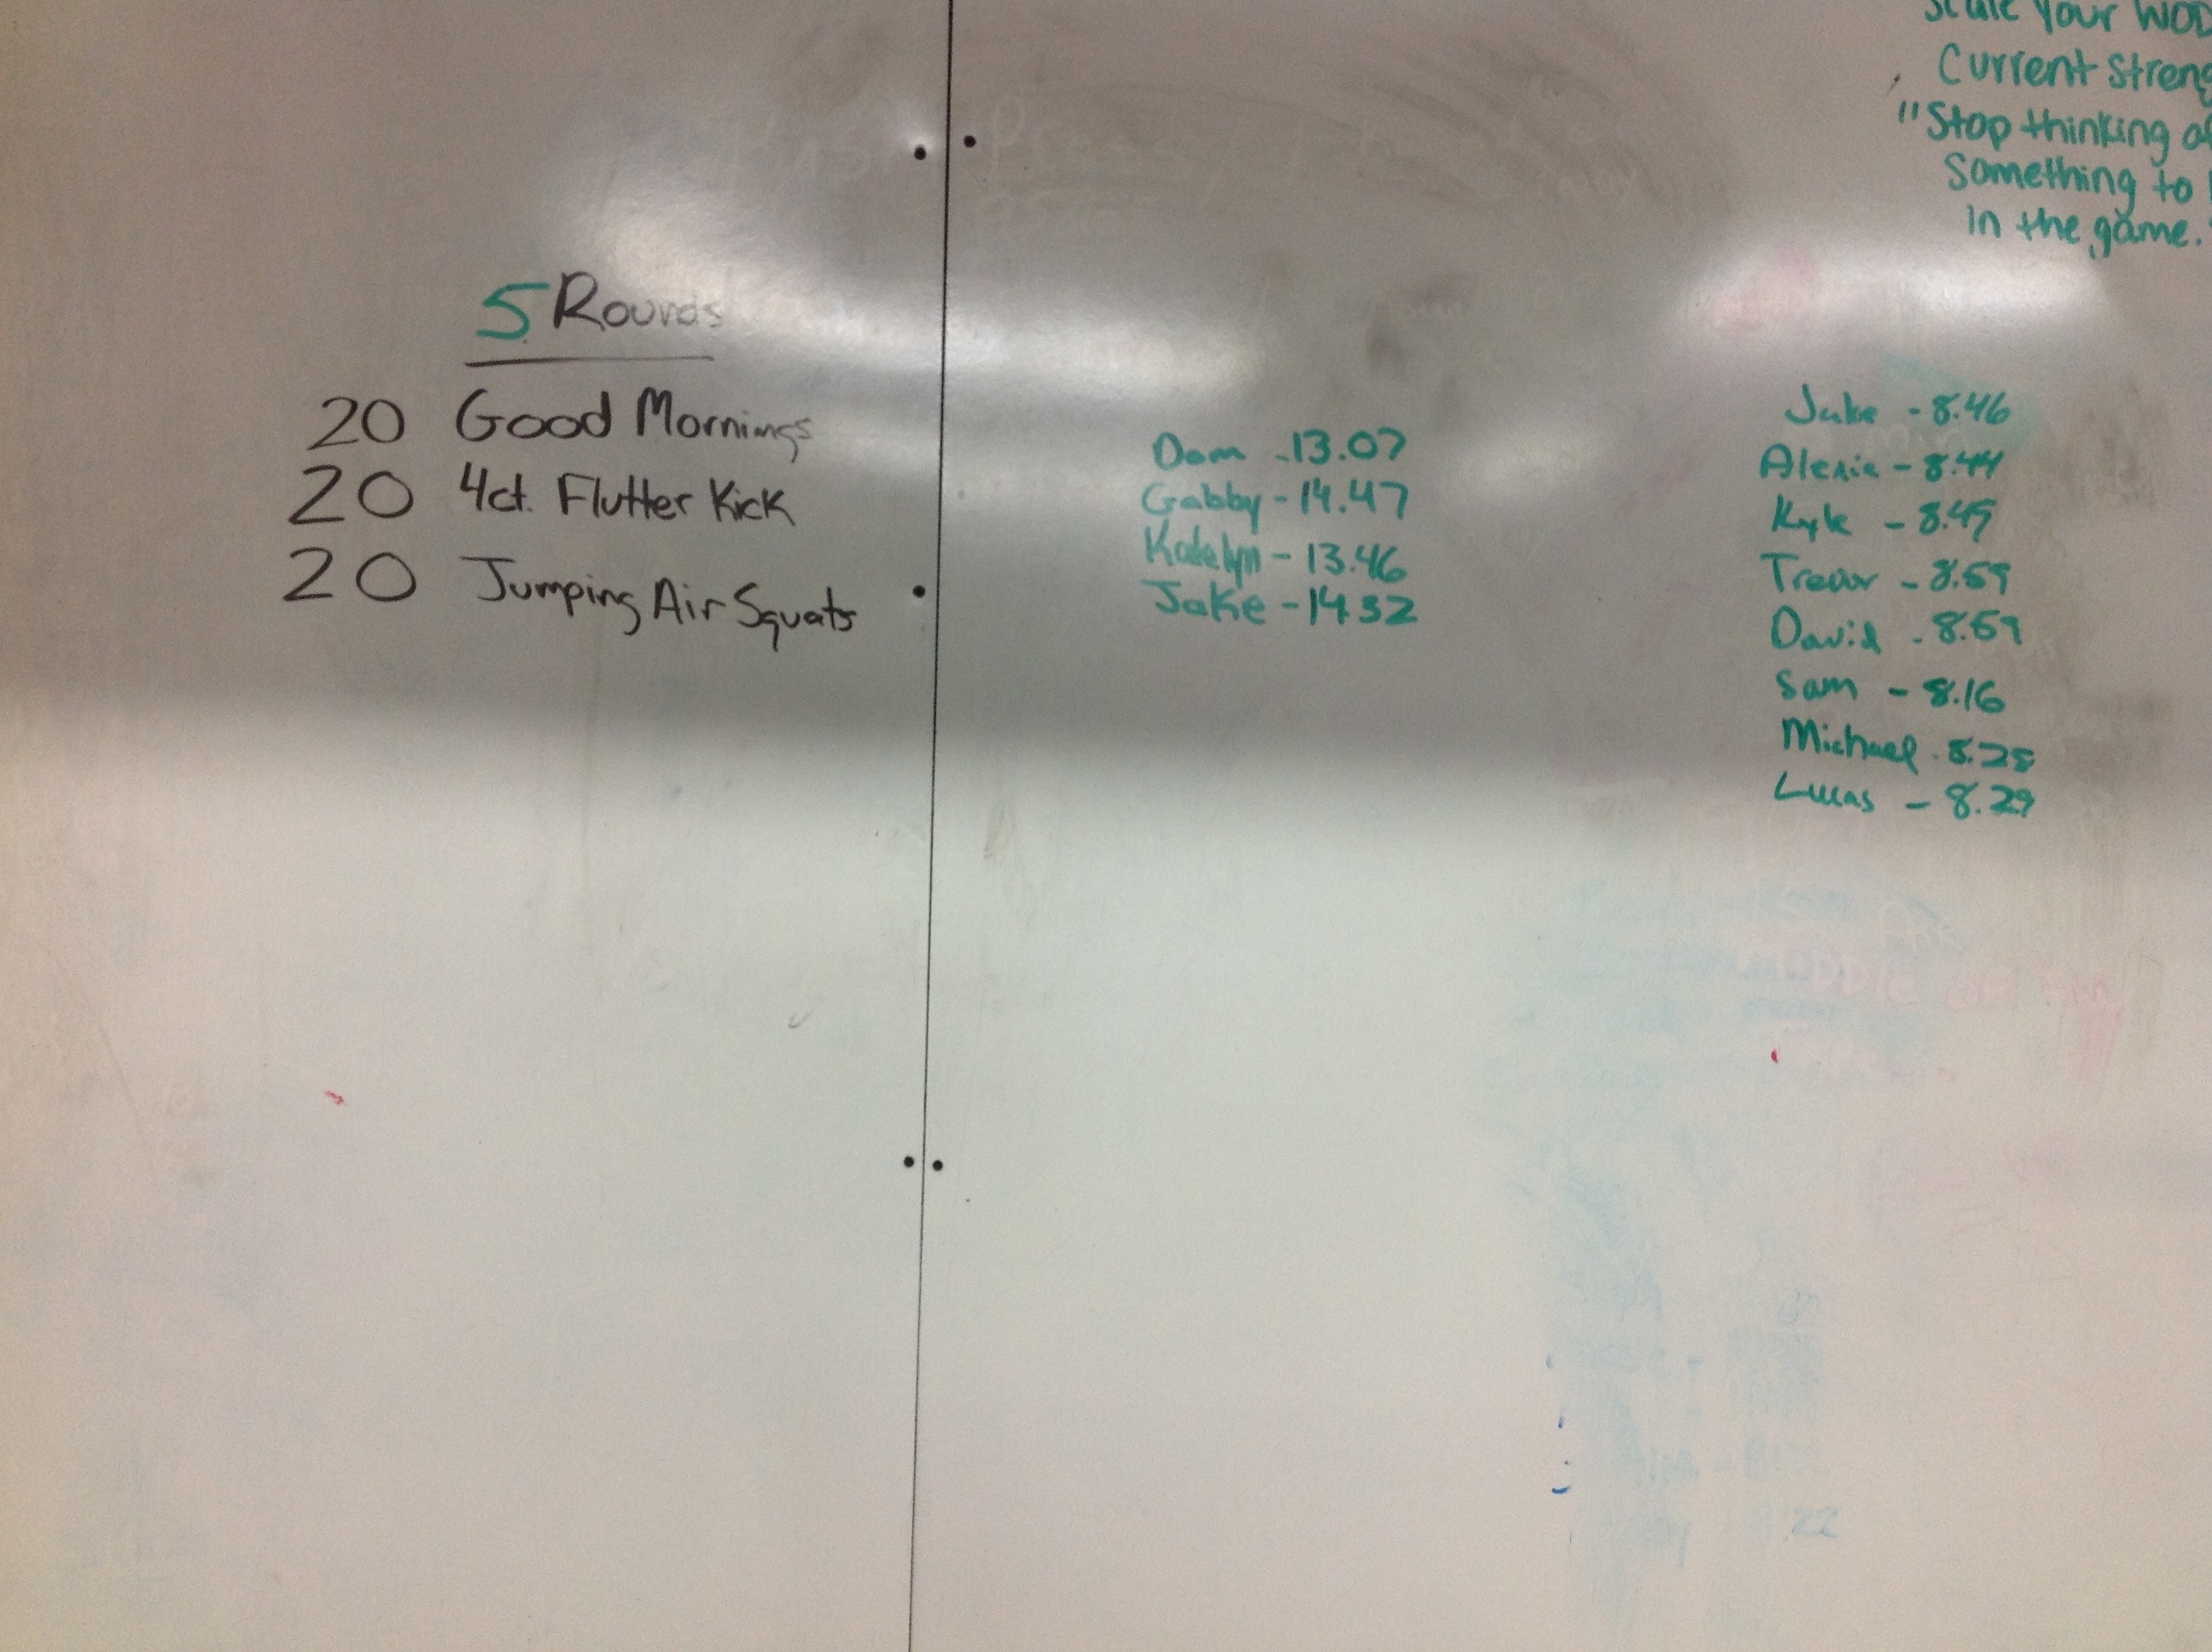 Scale Your WOD
Current Streng
"Stop thinking of
Something to
in the game."
5 Rounds
20 Good Mornings
20 4ct. Flutter Kick
20 Jumping Air Squats
Dom - 13.07
Gabby - 14.47
Katelyn - 13.46
Jake - 14 32
Jake - 8.46
Alexia - 8.44
Kyle - 8.49
Trevor - 8.59
David - 8.59
Sam - 8.16
Michael - 8.28
Lucas - 8.29